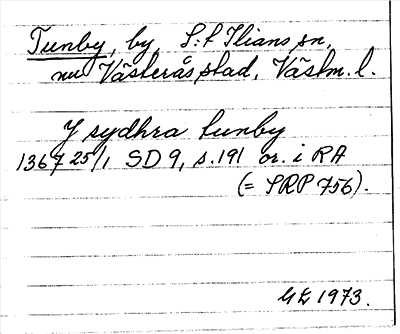 Tunby, by, S:t Ilians sn,
nu Västerås stad, Västm. l.
J sydhra tunby
1367 25/1, SD 9, s. 191 or. i RA
(= SRP 756).
GE 1973.